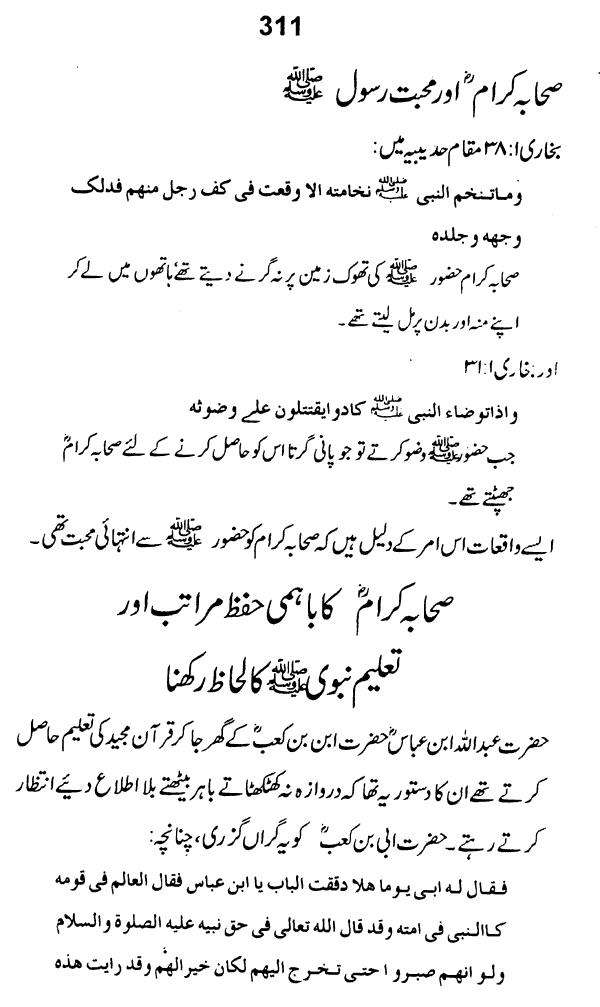 311
صحابہ کرامؓ اور محبت رسول ﷺ
بخاری ا:۳۸ مقام حدیبیہ میں:
وماتنخم النبی ﷺ نخامتہ الا وقعت فی کف رجل منھم فدلک
وجھہ وجلدہ
صحابہ کرام حضور ﷺ کی تھوک زمین پر نہ گرنے دیتے تھے ہاتھوں میں لے کر
اپنے منہ اور بدن پر مل لیتے تھے۔
اور بخاری ا:۳۱
واذاتوضاء النبی ﷺ کادوایقتتلون علے وضوئہ
جب حضور ﷺ وضو کرتے تو جو پانی گرتا اس کو حاصل کرنے کے لئے صحابہ کرامؓ
جھپٹتے تھے۔
ایسے واقعات اس امر کے دلیل ہیں کہ صحابہ کرام کو حضور ﷺ سے انتہائی محبت تھی۔
صحابہ کرامؓ کا باہمی حفظ مراتب اور
تعلیم نبوی ﷺ کا لحاظ رکھنا
حضرت عبداللہ ابن عباسؓ حضرت ابن بن کعبؓ کے گھر جا کر قرآن مجید کی تعلیم حاصل
کرتے تھے ان کا دستور یہ تھا کہ دروازہ نہ کھٹکھٹاتے باہر بیٹھتے بلا اطلاع دیئے انتظار
کرتے رہتے۔ حضرت ابی بن کعبؓ کو یہ گراں گزری، چنانچہ:
فقال لہ ابی یوما ھلا دققت الباب یا ابن عباس فقال العالم فی قومہ
کاالنبی فی امتہ وقد قال اللہ تعالی فی حق نبیہ علیہ الصلوۃ والسلام
ولو انھم صبروا حتی تخرج الیھم لکان خیرالھم وقد رایت ھذہ